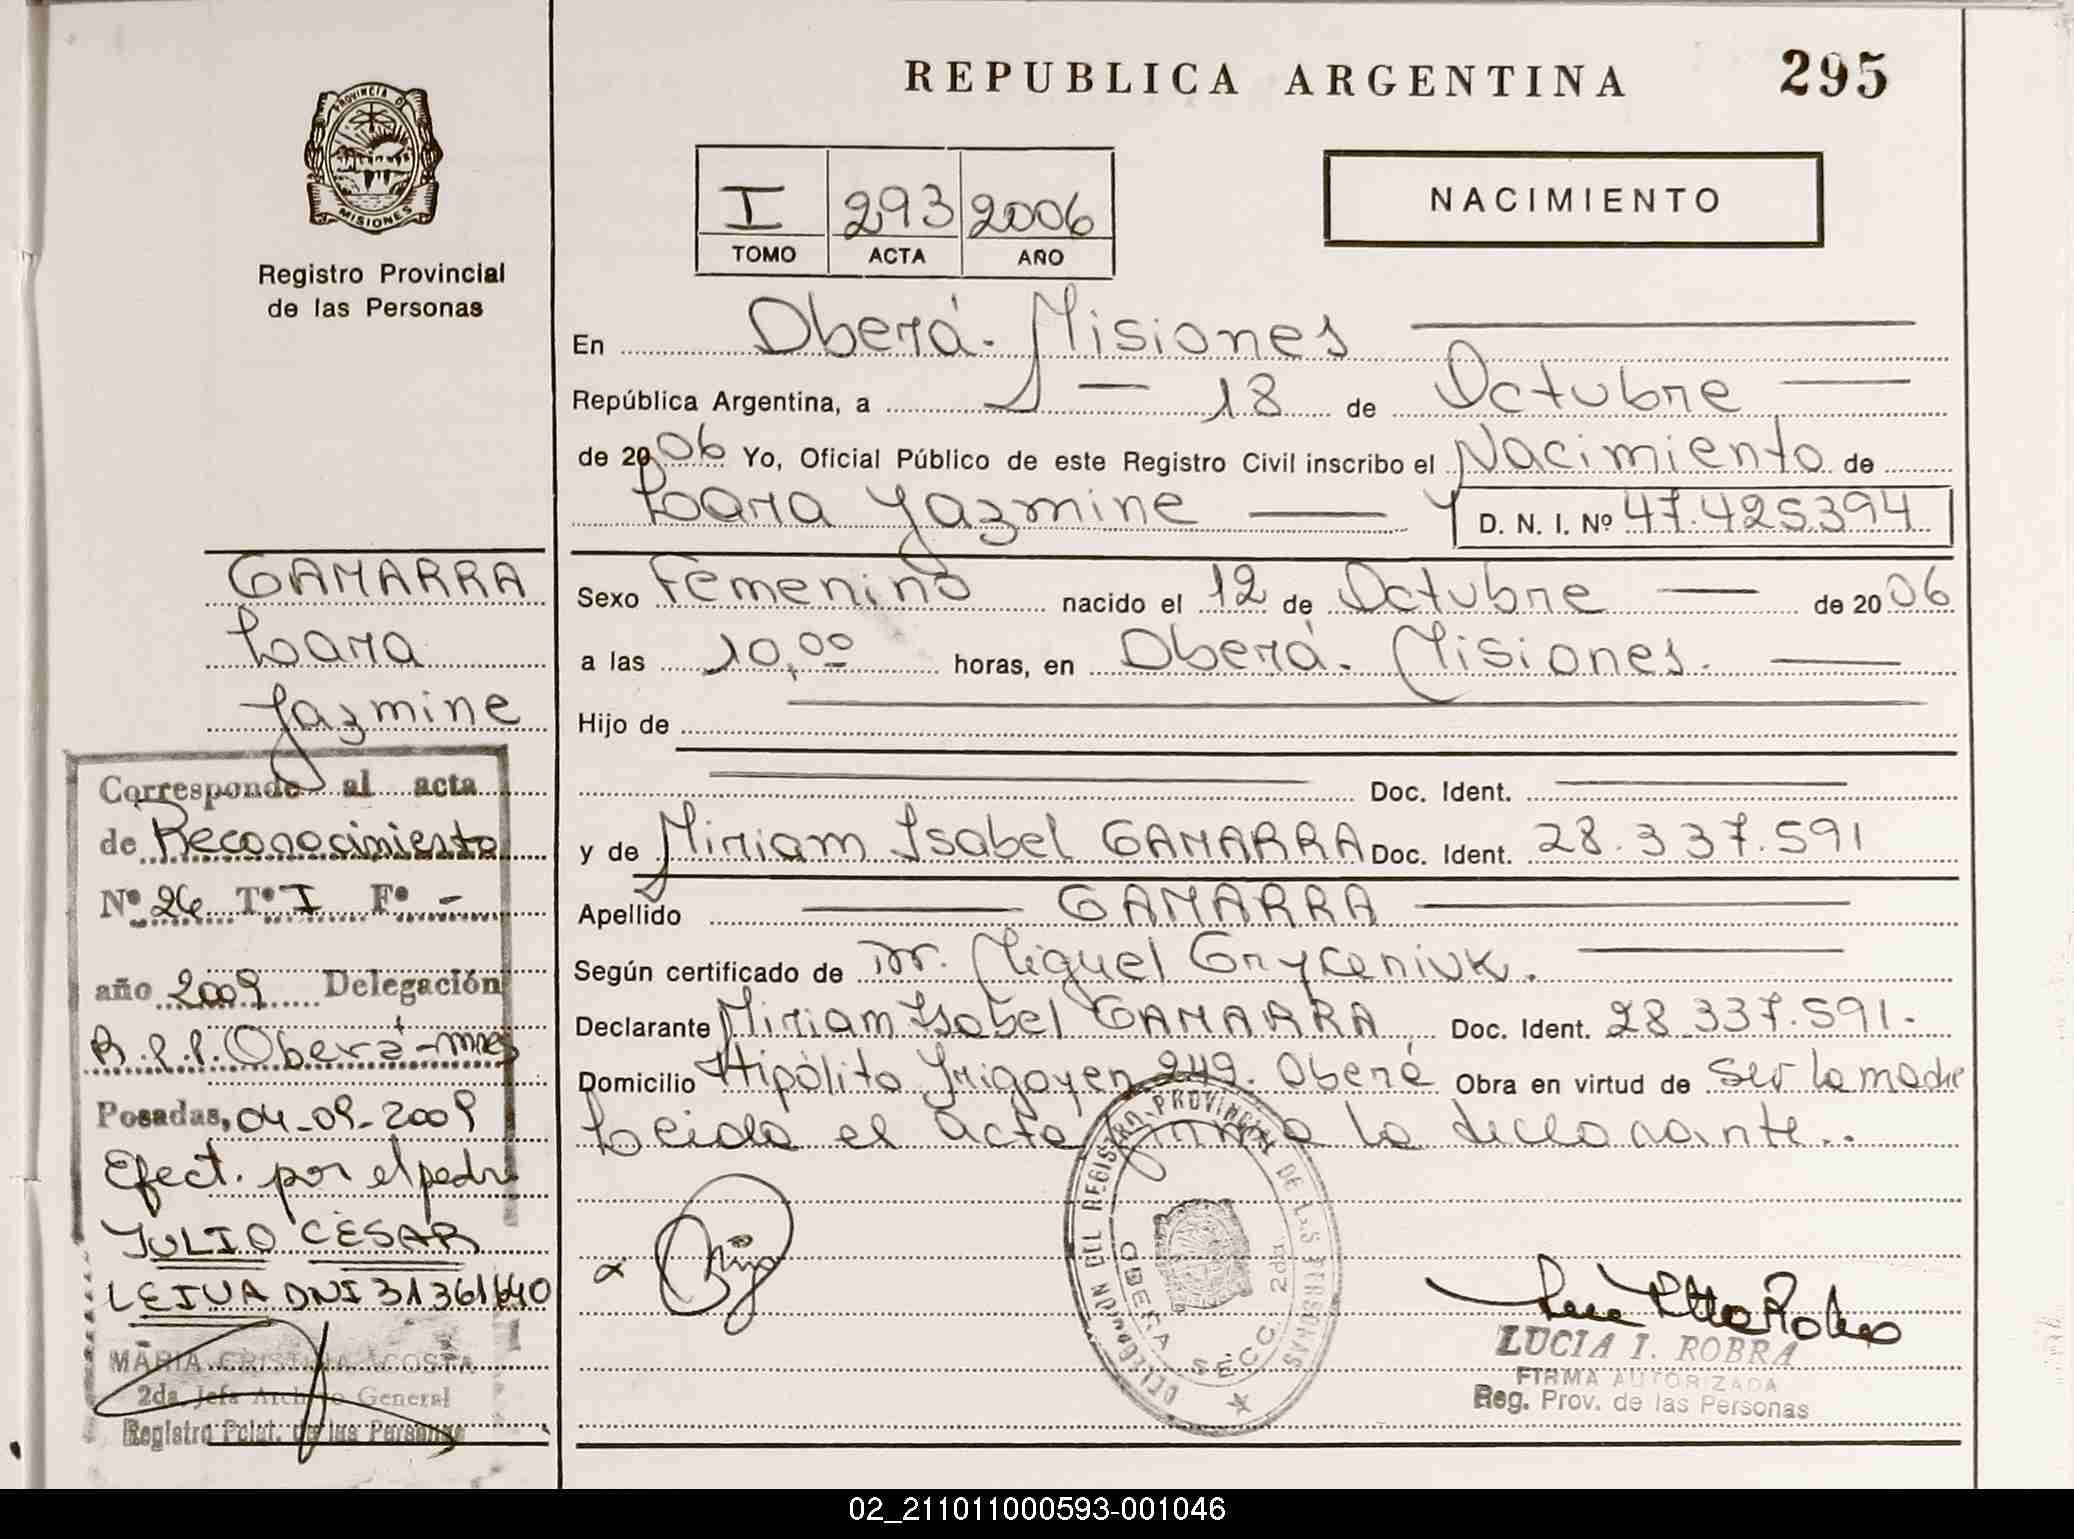 REPUBLICA ARGENTINA 295
PROVINCIA D MISIONES
Registro Provincial
de las Personas
I 293 2006
TOMO ACTA AÑO
NACIMIENTO
En Oberá - Misiones
República Argentina, a 18 de Octubre
de 2006 Yo, Oficial Público de este Registro Civil inscribo el Nacimiento de
Lara Yazmine D. N. I. Nº 47.425.394
Sexo Femenino nacido el 12 de Octubre de 2006
a las 10,00 horas, en Oberá - Misiones.
Hijo de
Doc. Ident.
y de Miriam Isabel GAMARRA Doc. Ident. 28.337.591
Apellido GAMARRA
Según certificado de Dr. Miguel Gryceniuk.
Declarante Miriam Isabel GAMARRA Doc. Ident. 28.337.591.
Domicilio Hipólito Irigoyen 249. Oberá Obra en virtud de Ser la madre
Leida el acta firma la declarante..
GAMARRA
Lara
Yazmine
Corresponde al acta
de Reconocimiento
Nº 26 Tº I Fº -
año 2009 Delegación
R.P.P. Oberá - mnes
Posadas, 04-09-2009
Efect. por el padre
JULIO CÉSAR
LEIVA DNI 31361640
MARIA CRISTINA ACOSTA
2da. Jefa Archivo General
Registro Pcial. de las Personas
DELEGACIÓN DEL REGISTRO PROVINCIAL DE LAS PERSONAS
OBERA SECC. 2da
LUCIA I. ROBRA
FIRMA AUTORIZADA
Reg. Prov. de las Personas
02_211011000593-001046